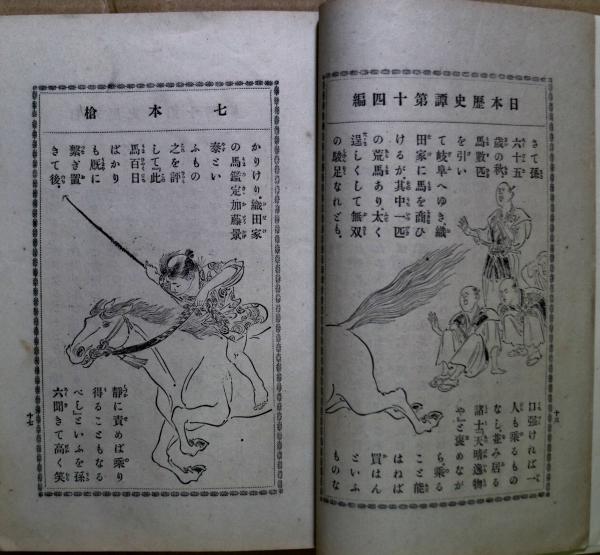 日本歴史譚第十四編
さて孫
六十五
歳の秋、
馬数匹
を引い
て岐阜へゆき、織
田家に馬を商ひ
けるが、其中一匹
の荒馬あり。太く
逞しくして無双
の駿足なれども、
口強ければ、一
人も乗るもの
なし。並み居る
諸士『天晴逸物
や』と褒めなが
ら乗る
こと能
はねば
買はん
といふ
ものな
七本槍
かりけり。織田家
の馬鑑定加藤景
泰とい
ふもの
之を評
して『此
馬百日
ばかり
も厩に
繋ぎ置
きて後、
静に責めば乗り
得ることもなる
べし』といふを孫
六聞きて高く笑
十七